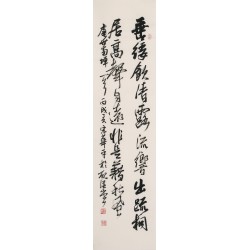 垂緌飲清露流響出疏桐
居高聲自遠非是藉秋風
虞世南蟬